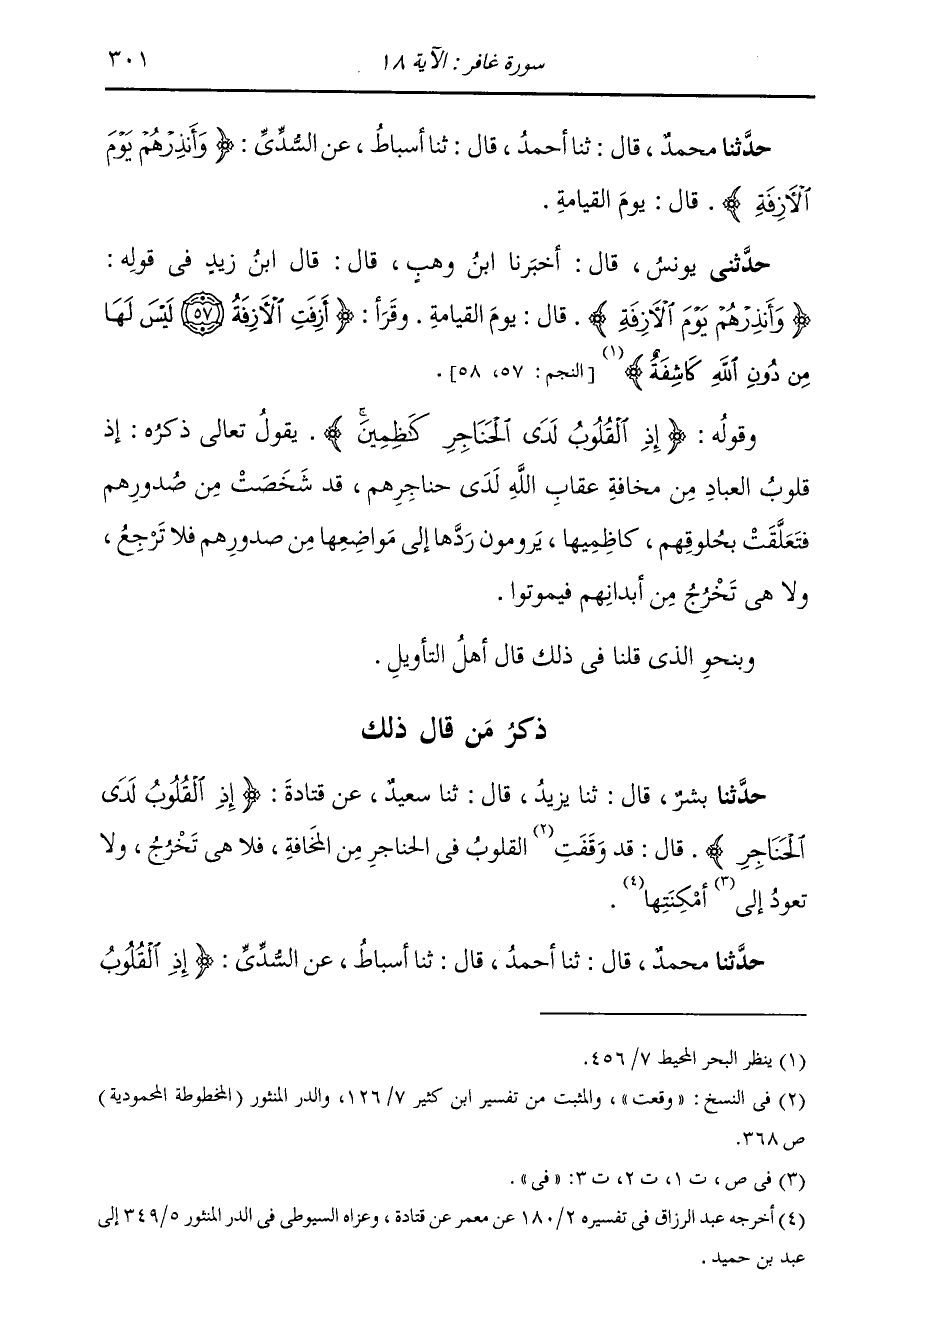 سورة غافر : الآية ١٨ ٣٠١
حدَّثنا محمدٌ ، قال : ثنا أحمدُ ، قال : ثنا أسباطُ ، عن السُّدِّىِّ : ﴿ وَأَنذِرْهُمْ يَوْمَ
ٱلْأَزِفَةِ ﴾ . قال : يومَ القيامةِ .
حدَّثنى يونسُ ، قال : أخبَرنا ابنُ وهبٍ ، قال : قال ابنُ زيدٍ فى قولِه :
﴿ وَأَنذِرْهُمْ يَوْمَ ٱلْأَزِفَةِ ﴾ . قال : يومَ القيامةِ . وقَرَأ : ﴿ أَزِفَتِ ٱلْأَزِفَةُ ﴿٥٧﴾ لَيْسَ لَهَا
مِن دُونِ ٱللَّهِ كَاشِفَةٌ ﴾(١) [النجم : ٥٧، ٥٨] .
وقولُه : ﴿ إِذِ ٱلْقُلُوبُ لَدَى ٱلْحَنَاجِرِ كَٰظِمِينَۚ ﴾ . يقولُ تعالى ذكرُه : إذ
قلوبُ العبادِ مِن مخافةِ عقابِ اللَّهِ لَدَى حناجرِهم ، قد شَخَصَتْ مِن صُدورِهم
فتَعَلَّقَتْ بحُلوقِهم ، كاظِمِيها ، يَرومون رَدَّها إلى مَواضِعِها مِن صدورِهم فلا تَرْجِعُ ،
ولا هى تَخْرُجُ مِن أبدانِهم فيموتوا .
وبنحوِ الذى قلنا فى ذلك قال أهلُ التأويلِ .
ذكرُ مَن قال ذلك
حدَّثنا بشرٌ ، قال : ثنا يزيدُ ، قال : ثنا سعيدٌ ، عن قتادةَ : ﴿ إِذِ ٱلْقُلُوبُ لَدَى
ٱلْحَنَاجِرِ ﴾ . قال : قد وَقَفَتِ(٢) القلوبُ فى الحناجرِ مِن المخافةِ ، فلا هى تَخْرُجُ ، ولا
تعودُ إلى(٣) أمْكِنَتِها(٤) .
حدَّثنا محمدٌ ، قال : ثنا أحمدُ ، قال : ثنا أسباطُ ، عن السُّدِّىِّ : ﴿ إِذِ ٱلْقُلُوبُ
(١) ينظر البحر المحيط ٧/ ٤٥٦.
(٢) فى النسخ : « وقعت » ، والمثبت من تفسير ابن كثير ٧/ ١٢٦، والدر المنثور (المخطوطة المحمودية)
ص ٣٦٨.
(٣) فى ص ، ت ١، ت ٢، ت ٣: « فى » .
(٤) أخرجه عبد الرزاق فى تفسيره ١٨٠/٢ عن معمر عن قتادة ، وعزاه السيوطى فى الدر المنثور ٣٤٩/٥ إلى
عبد بن حميد .